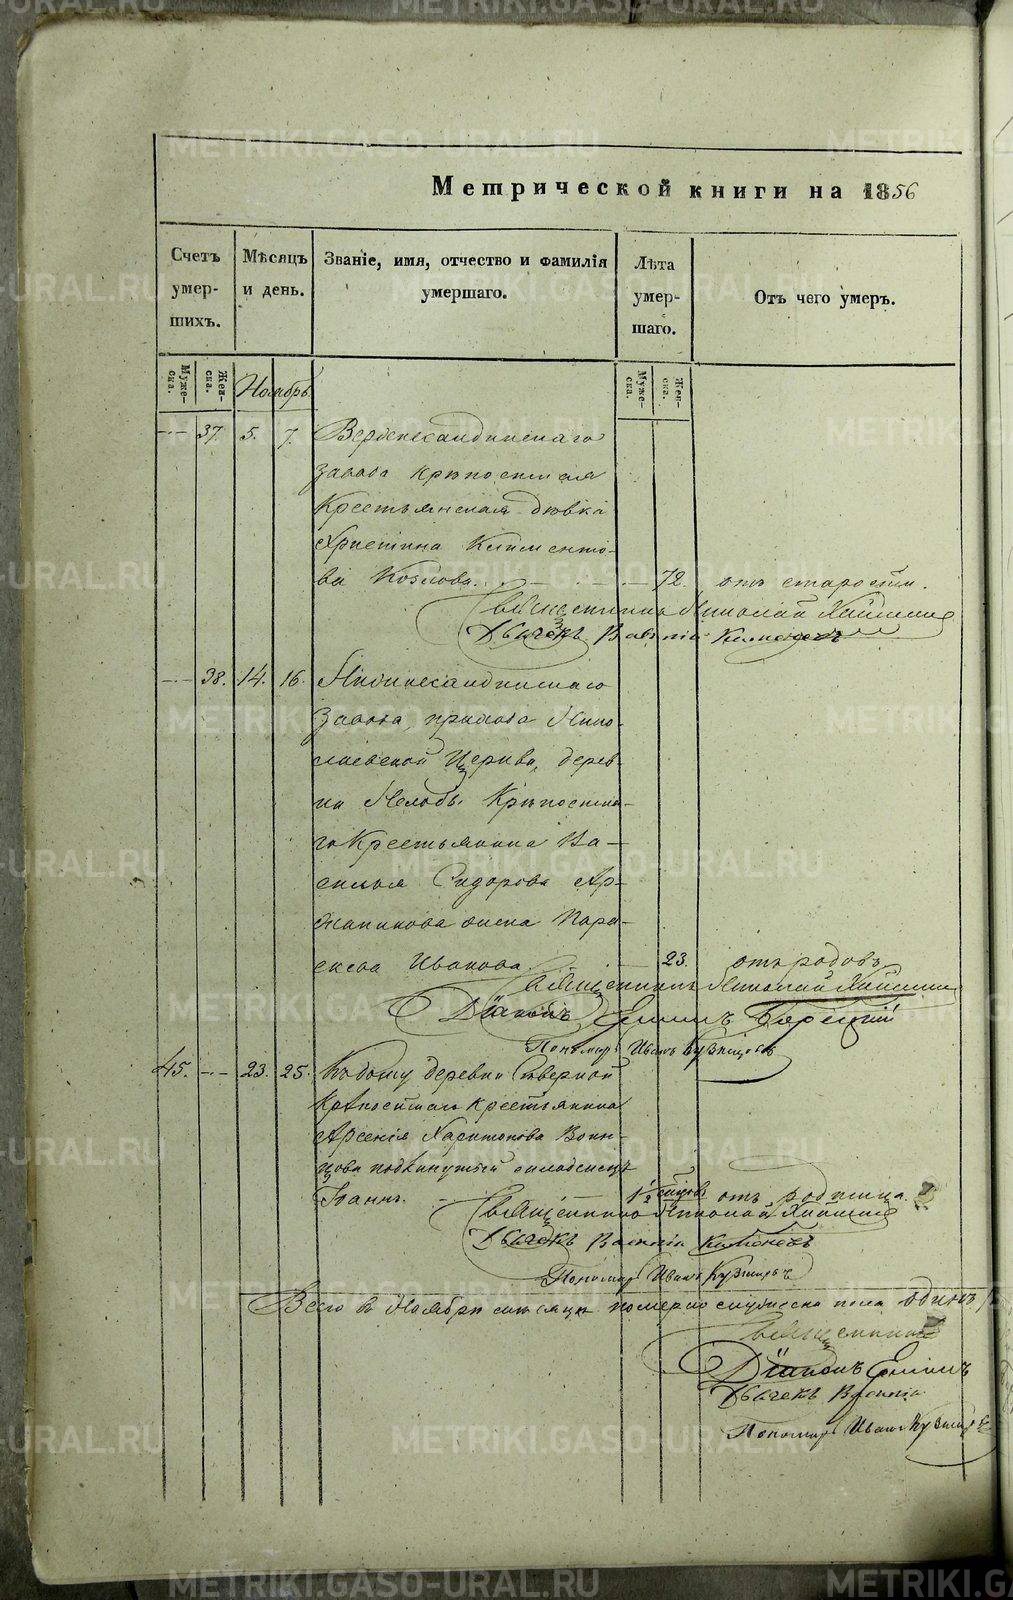 Метрической книги на 1856
Счетъ умер-шихъ.
Мѣсяцъ и день.
Званіе, имя, отчество и фамилія умершаго.
Лѣта умер-шаго.
Отъ чего умеръ.
Муже-ска.
Жен-ска.
Ноябрь.
Муже-ска.
Жен-ска.
37. 5. 7.
завода крѣпостная
Крестьянская дѣвка
Христина Клименто-
ва Козлова. 72. отъ старости.
Священникъ Николай
Дьячекъ
38. 14. 16.
завода, прихода Нико-
лаевской Церкви, дерев-
ни Крѣпостна-
го Крестьянина Ва-
силья Сидорова Ар-
жанникова жена Пара-
скева Иванова 23. отъ родовъ
Священникъ Николай
Діаконъ
Пономарь Иванъ Кузнецовъ
45. 23. 25. Къ дому деревни Сѣверной
Крѣпостнаго Крестьянина
Арсенія Харитонова Воин-
цова подкинутый младенецъ
Іоаннъ. 1/2 отъ родимца.
Священникъ Николай
Дьячекъ
Пономарь Иванъ Кузнецовъ
Всего в Ноябрѣ мѣсяцѣ померло мужеска пола одинъ,
Священникъ
Діаконъ
Дьячекъ
Пономарь Иванъ Кузнецовъ
METRIKI.GASO-URAL.RU